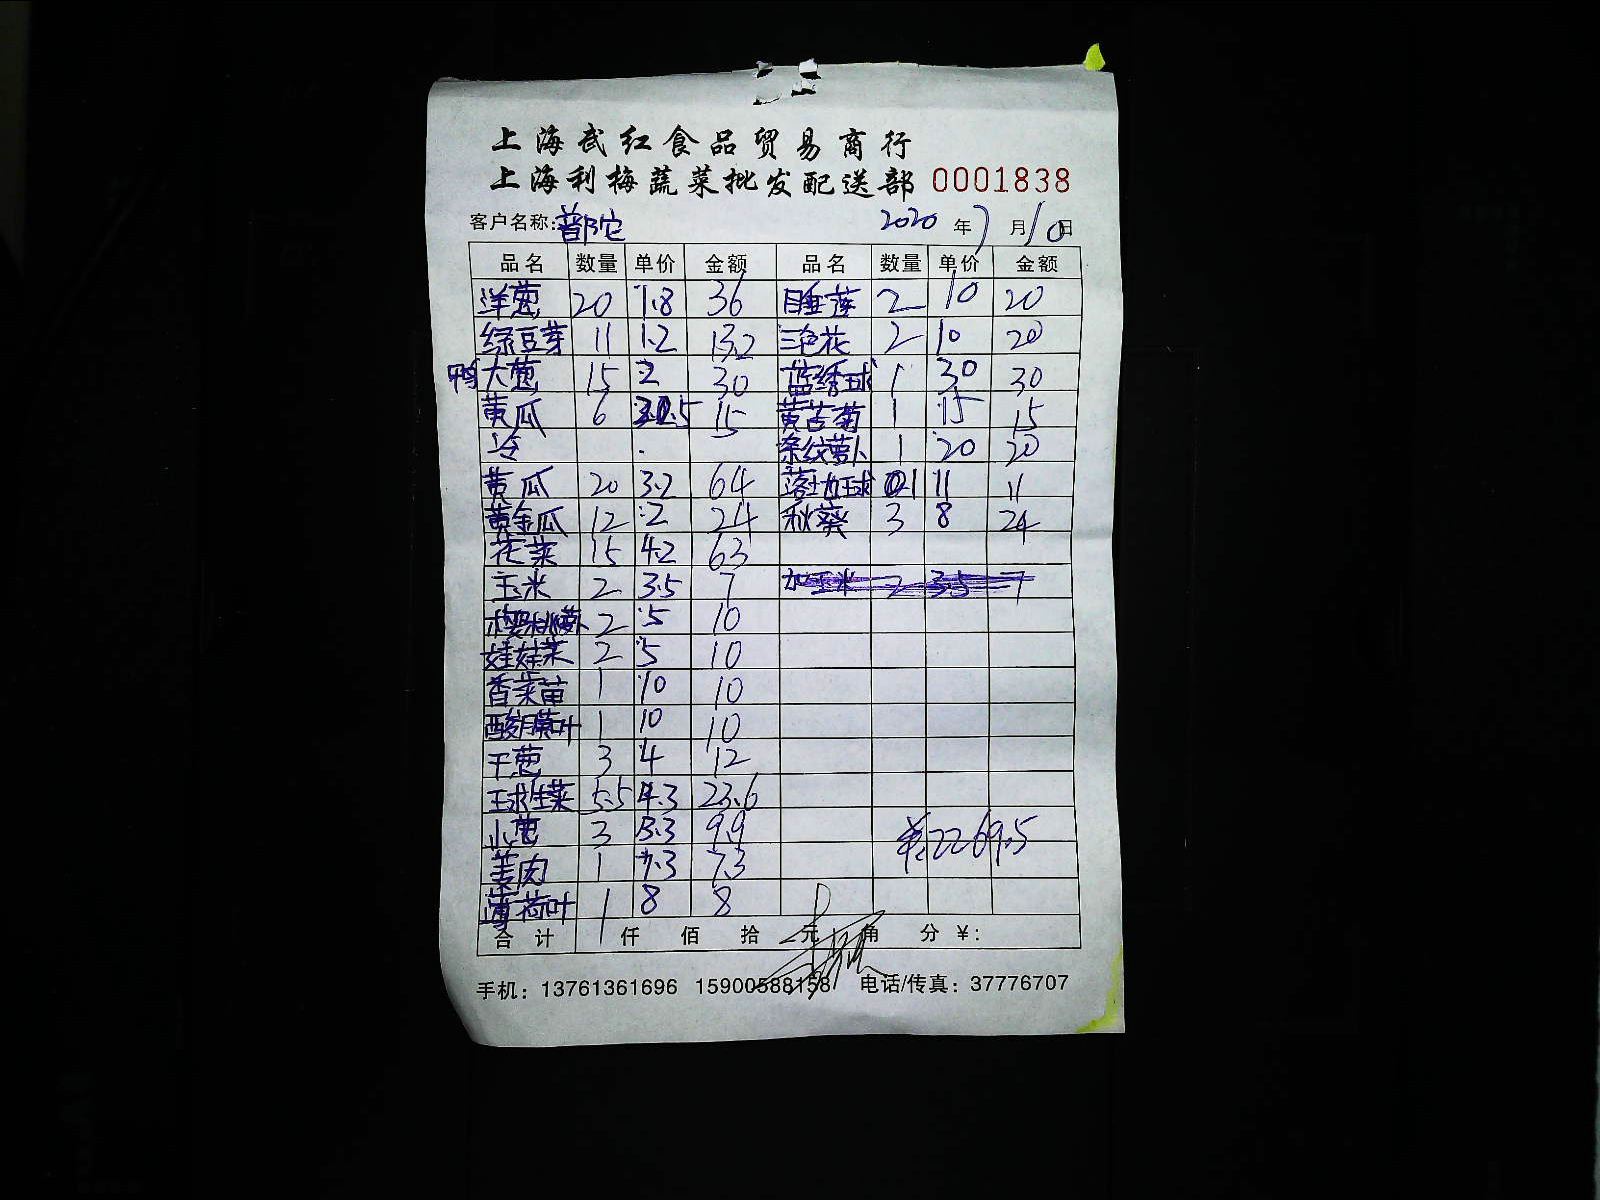 上海武红食品贸易商行
上海利梅蔬菜批发配送部 0001838
客户名称: 普陀 2020 年 7 月 10 日
品名 数量 单价 金额 品名 数量 单价 金额
洋葱 20 1.8 36 睡莲 2 10 20
绿豆芽 11 1.2 13.2 三色花 2 10 20
鸭 大葱 15 2 30 蓝绣球 1 30 30
黄瓜 6 2.5 15 黄苦菊 1 15 15
冷 条纹萝卜 1 20 20
黄瓜 20 3.2 64 落地球 1 11 11
黄金瓜 12 2 24 秋葵 3 8 24
花菜 15 4.2 63
玉米 2 3.5 7 加玉米 2 3.5 7
樱桃萝卜 2 5 10
娃娃菜 2 5 10
香菜苗 1 10 10
酸膜叶 1 10 10
干葱 3 4 12
球生菜 5.5 4.3 23.6
小葱 3 3.3 9.9 ¥:2269.5
姜肉 1 7.3 7.3
薄荷叶 1 8 8
合计 仟 佰 拾 元 角 分 ¥:
手机: 13761361696 15900588158 电话/传真: 37776707